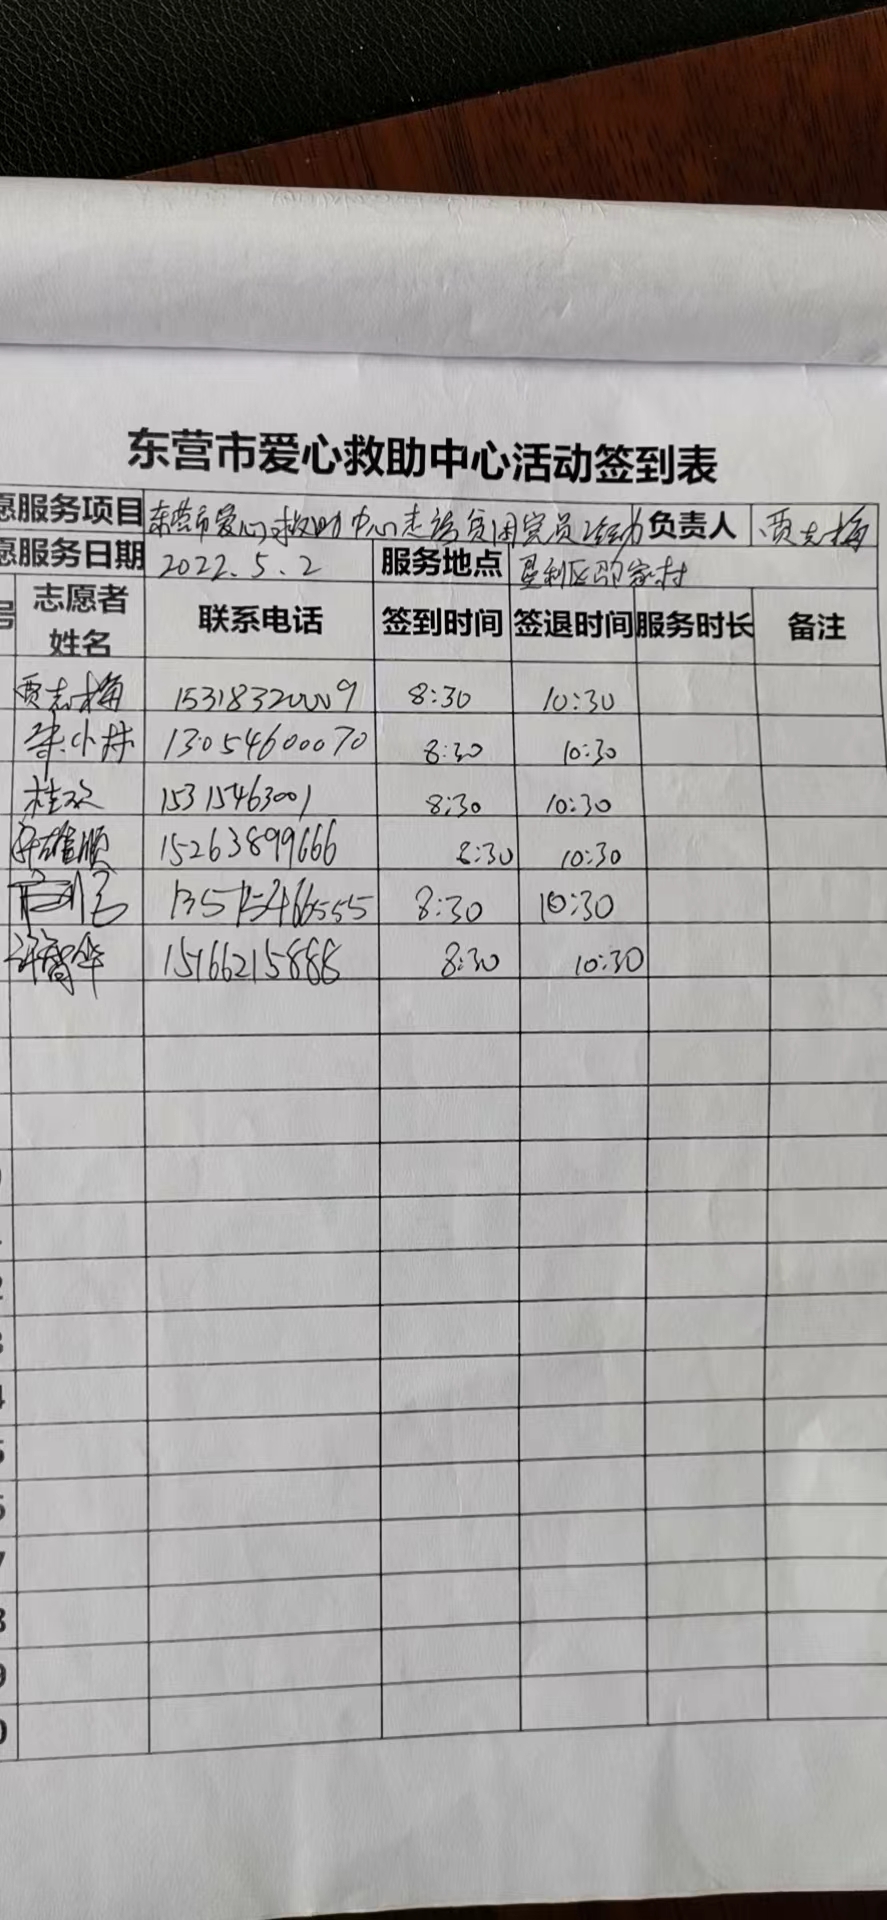 东营市爱心救助中心活动签到表
愿服务项目 东营市爱心救助中心走访贫困党员活动 负责人 贾志梅
愿服务日期 2022.5.2 服务地点 垦利区邵家村
号 志愿者姓名 联系电话 签到时间 签退时间 服务时长 备注
贾志梅 15318320009 8:30 10:30
13054600070 8:30 10:30
桂欢 15315463001 8:30 10:30
15263899666 8:30 10:30
8:30 10:30
许智华 15166215888 8:30 10:30